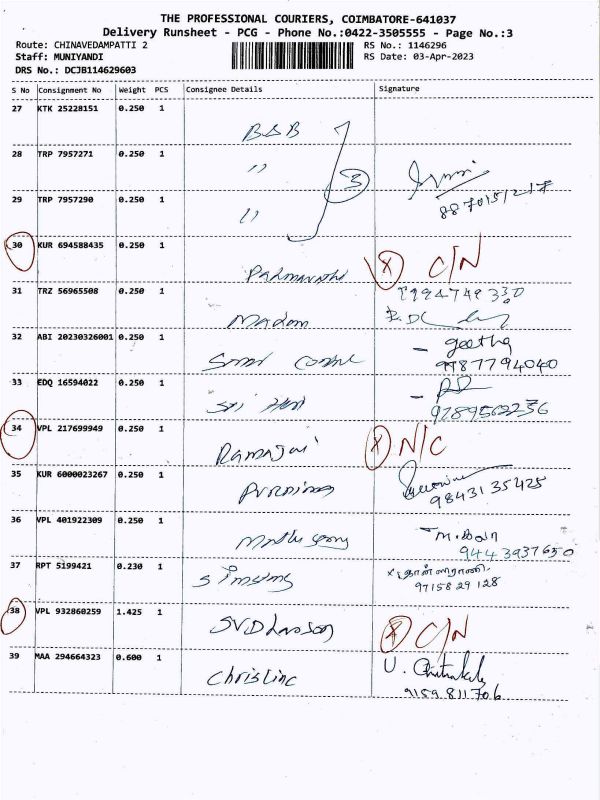 THE PROFESSIONAL COURIERS, COIMBATORE-641037
Delivery Runsheet - PCG - Phone No.:0422-3505555 - Page No.:3
Route: CHINAVEDAMPATTI 2
RS No.: 1146296
Staff: MUNIYANDI
RS Date: 03-Apr-2023
DRS No.: DCJB114629603
S No Consignment No Weight PCS Consignee Details Signature
27 KTK 25228151 0.250 1
B&B
28 TRP 7957271 0.250 1
"
3
29 TRP 7957290 0.250 1
"
30 KUR 694588435 0.250 1
Padmavathi X C/N
31 TRZ 56965508 0.250 1
Madam
32 ABI 20230326001 0.250 1
geetha
9787794040
33 EDQ 16594022 0.250 1
Sri
34 VPL 217699949 0.250 1
X N/C
35 KUR 6000023267 0.250 1
9843135425
36 VPL 401922309 0.250 1
9443937650
37 RPT 5199421 0.230 1
9715829128
38 VPL 932860259 1.425 1
X C/N
39 MAA 294664323 0.600 1
Christinc
9159811706